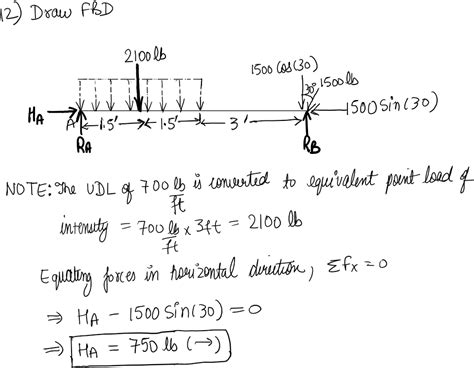 12) Draw FBD
2100 lb
1500 Cos(30)
30° 1500 lb
H_A A 1500 Sin(30)
1.5' 1.5' 3'
R_A R_B
NOTE: The UDL of 700 lb/ft is converted to equivalent point load of
intensity = 700 lb/ft × 3ft = 2100 lb
Equating forces in horizontal direction, Σfx = 0
⇒ H_A - 1500 Sin(30) = 0
⇒ H_A = 750 lb (→)